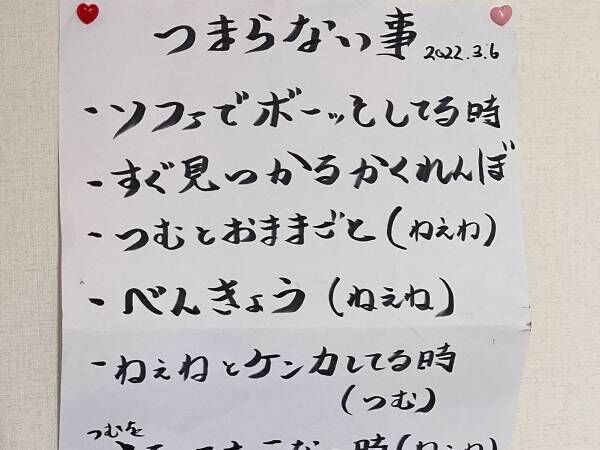 つまらない事
2022.3.6
- ソファでボーッとしてる時
- すぐ見つかるかくれんぼ
- つむとおままごと(ねぇね)
- べんきょう(ねぇね)
- ねぇねとケンカしてる時
(つむ)
つむを
時(ねぇね)